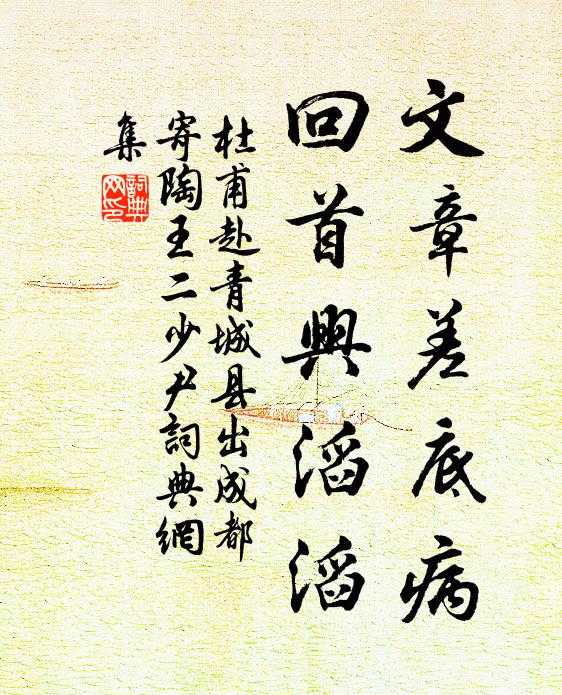 文章差底病
回首興滔滔
杜甫赴青城县出成都
寄陶王二少尹詞典網
集
詞典
网印